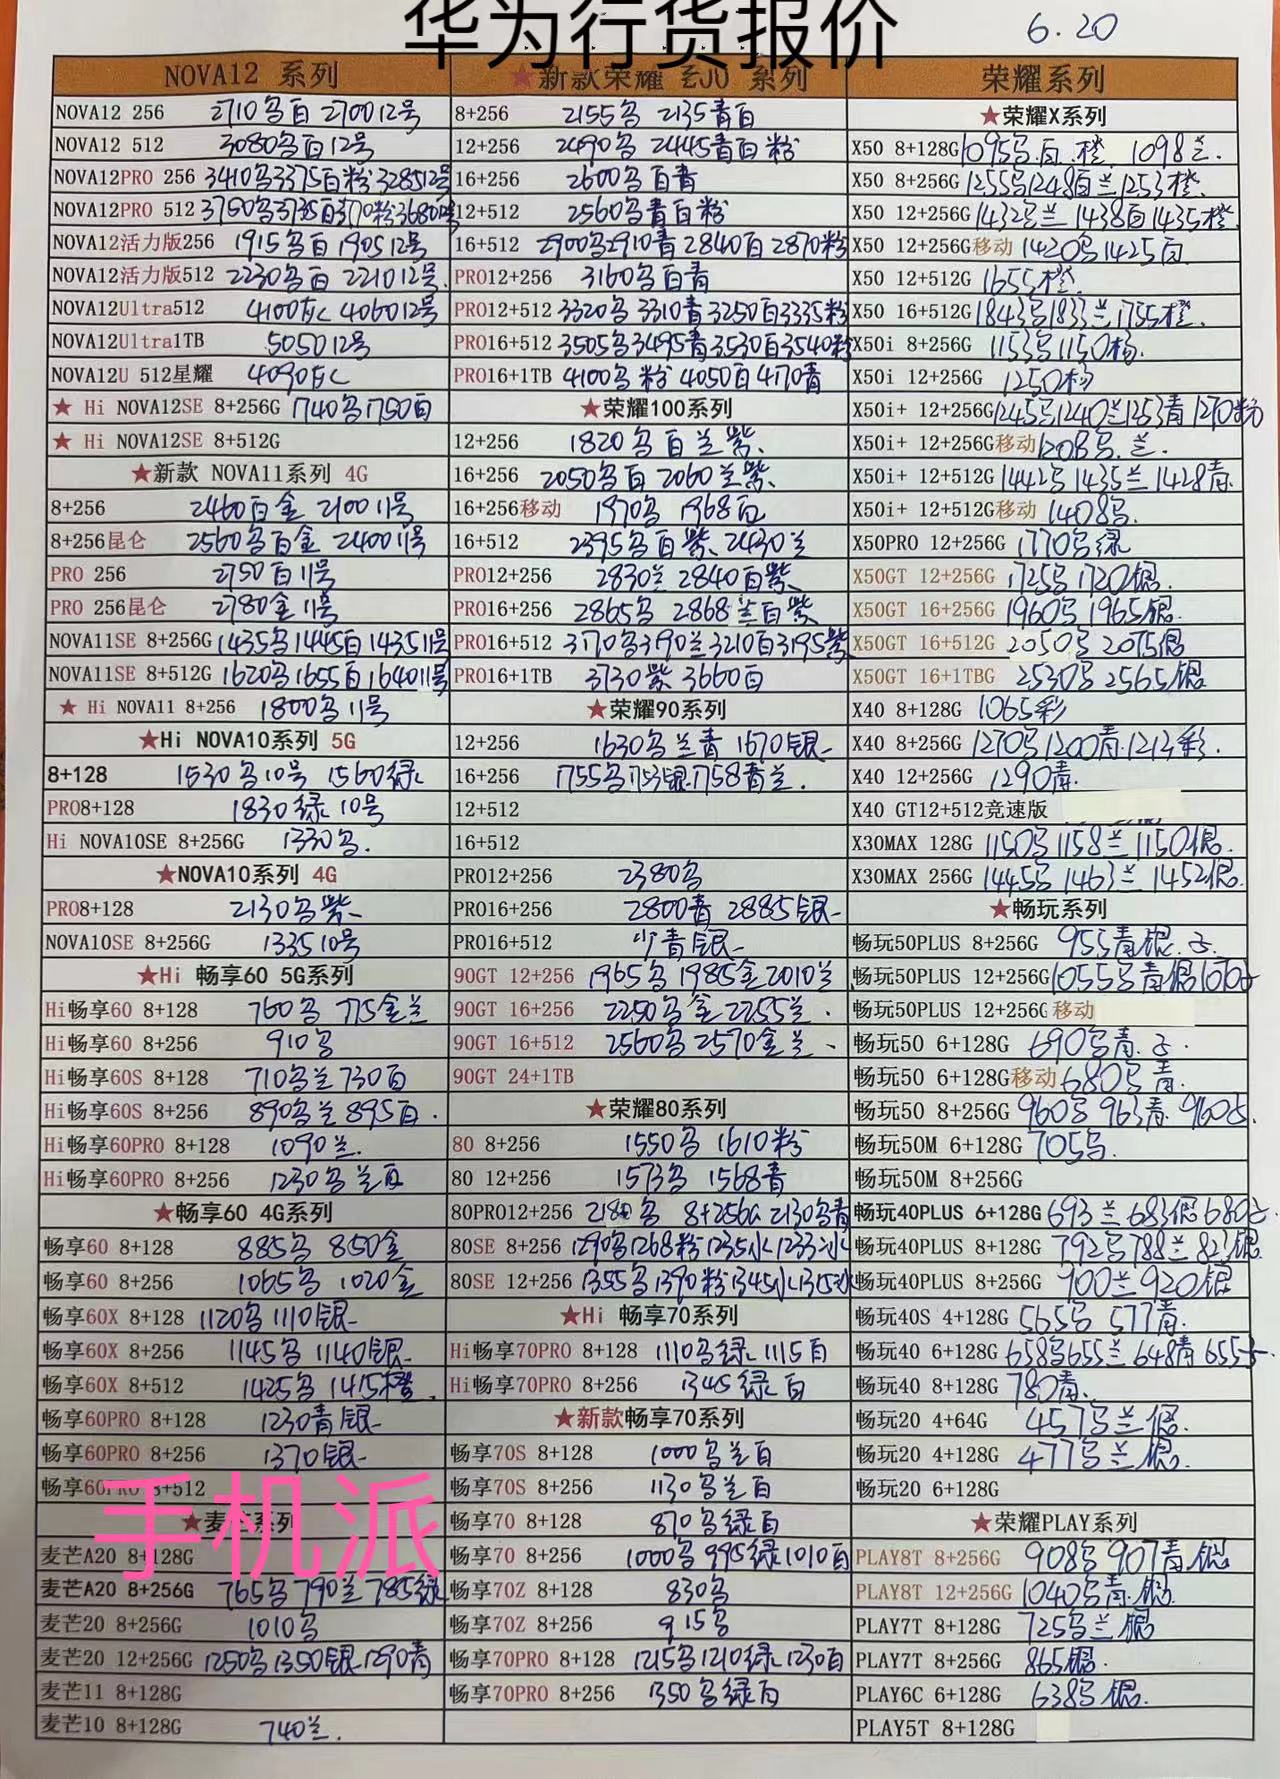 华为行货报价
6.20
NOVA12 系列
NOVA12 256 2710乌白 2700 12号
NOVA12 512 3080乌白12号
NOVA12PRO 256 3410乌3375白粉3285 12号
NOVA12PRO 512
NOVA12活力版256 1915乌白 1905 12号
NOVA12活力版512 2230乌白 2210 12号.
NOVA12Ultra512 4100 4060 12号
NOVA12Ultra1TB 5050 12号
NOVA12U 512星耀 4090
★ Hi NOVA12SE 8+256G 1740乌1750白
★ Hi NOVA12SE 8+512G
★新款 NOVA11系列 4G
8+256 2460白金 2100 11号
8+256昆仑 2560乌白金 2400 11号
PRO 256 2750白11号
PRO 256昆仑 2780金11号
NOVA11SE 8+256G 1435乌1445白1435 11号
NOVA11SE 8+512G 1620乌1655白1640 11号
★ Hi NOVA11 8+256 1800乌11号
★Hi NOVA10系列 5G
8+128 1530乌10号 1560绿
PRO8+128 1830绿10号
Hi NOVA10SE 8+256G 1330乌.
★NOVA10系列 4G
PRO8+128 2130乌紫
NOVA10SE 8+256G 1335 10号
★Hi 畅享60 5G系列
Hi畅享60 8+128 760乌 775金兰
Hi畅享60 8+256 910乌
Hi畅享60S 8+128 710乌兰730白
Hi畅享60S 8+256 890乌兰895白.
Hi畅享60PRO 8+128 1090兰.
Hi畅享60PRO 8+256 1230乌兰白
★畅享60 4G系列
畅享60 8+128 885乌 850金
畅享60 8+256 1065乌 1020金
畅享60X 8+128 1120乌1110银
畅享60X 8+256 1145乌1140银
畅享60X 8+512 1425乌1415橙.
畅享60PRO 8+128 1230青银
畅享60PRO 8+256 1370银
畅享60PRO 8+512
手机派
★麦芒系列
麦芒A20 8+128G
麦芒A20 8+256G 765乌790兰785绿
麦芒20 8+256G 1010乌
麦芒20 12+256G 1250乌1350银1290青
麦芒11 8+128G
麦芒10 8+128G 740兰.
★新款荣耀 系列
8+256 2155乌 2135青白
12+256 2490乌 2445青白粉
16+256 2600乌白青
12+512 2560乌青白粉
16+512 2900乌2910青2840白2870粉
PRO12+256 3160乌白青
PRO12+512 3320乌3310青3250白3335粉
PRO16+512 3505乌3495青3530白3540粉
PRO16+1TB 4100乌粉4050白4170青
★荣耀100系列
12+256 1820乌白兰紫.
16+256 2050乌白 2060兰紫.
16+256移动 1970乌 1968白
16+512 2395乌白紫.2430兰
PRO12+256 2830兰2840白紫
PRO16+256 2865乌 2868兰白紫
PRO16+512 3170乌3190兰3210白3195紫
PRO16+1TB 3730紫3660白
★荣耀90系列
12+256 1630乌兰青1670银
16+256 1755乌1753银1758青兰.
12+512
16+512
PRO12+256 2380乌
PRO16+256 2800青2885银
PRO16+512 少青银
90GT 12+256 1965乌1985金2010兰
90GT 16+256 2250乌金2255兰.
90GT 16+512 2560乌2570金兰
90GT 24+1TB
★荣耀80系列
80 8+256 1550乌 1610粉
80 12+256 1573乌 1568青
80PRO12+256 2180乌 8+256G 2130乌青
80SE 8+256 1290乌1268粉1235水1233冰
80SE 12+256 1355乌1390粉1345水1315冰
★Hi 畅享70系列
Hi畅享70PRO 8+128 1110乌绿1115白
Hi畅享70PRO 8+256 1345绿白
★新款畅享70系列
畅享70S 8+128 1000乌兰白
畅享70S 8+256 1130乌兰白
畅享70 8+128 870乌绿白
畅享70 8+256 1000乌995绿1010白
畅享70Z 8+128 830乌
畅享70Z 8+256 915乌
畅享70PRO 8+128 1215乌1210绿1230白
畅享70PRO 8+256 1350乌绿白
荣耀系列
★荣耀X系列
X50 8+128G 1095乌.白.橙. 1098兰.
X50 8+256G 1255乌1248白兰1253橙.
X50 12+256G 1432乌兰1438白1435橙.
X50 12+256G移动 1420乌1425白
X50 12+512G 1655橙.
X50 16+512G 1843乌1833兰1755橙.
X50i 8+256G 1153乌1150杨.
X50i 12+256G 1250杨
X50i+ 12+256G 1245乌1240兰1253青1270粉
X50i+ 12+256G移动 1208乌.兰.
X50i+ 12+512G 1442乌1435兰1428青.
X50i+ 12+512G移动 1408乌.
X50PRO 12+256G 1770乌绿
X50GT 12+256G 1725乌1720银.
X50GT 16+256G 1960乌1965银.
X50GT 16+512G 2050乌2075银
X50GT 16+1TBG 2530乌2565银
X40 8+128G 1065彩
X40 8+256G 1270乌1200青.1214彩.
X40 12+256G 1290青.
X40 GT12+512竞速版
X30MAX 128G 1150乌1158兰1150银.
X30MAX 256G 1445乌1463兰1452银.
★畅玩系列
畅玩50PLUS 8+256G 955青银.
畅玩50PLUS 12+256G 1055乌青银
畅玩50PLUS 12+256G移动
畅玩50 6+128G 690乌青.
畅玩50 6+128G移动 680乌青.
畅玩50 8+256G 960乌963青.960
畅玩50M 6+128G 705乌.
畅玩50M 8+256G
畅玩40PLUS 6+128G 693兰683银680
畅玩40PLUS 8+128G 792乌788兰823银
畅玩40PLUS 8+256G 900兰920银
畅玩40S 4+128G 565乌 577青.
畅玩40 6+128G 658乌655兰648青655
畅玩40 8+128G 780青.
畅玩20 4+64G 457乌兰银.
畅玩20 4+128G 477乌兰银.
畅玩20 6+128G
★荣耀PLAY系列
PLAY8T 8+256G 908乌907青.银
PLAY8T 12+256G 1040乌青.银.
PLAY7T 8+128G 725乌兰银
PLAY7T 8+256G 865银.
PLAY6C 6+128G 638乌银.
PLAY5T 8+128G